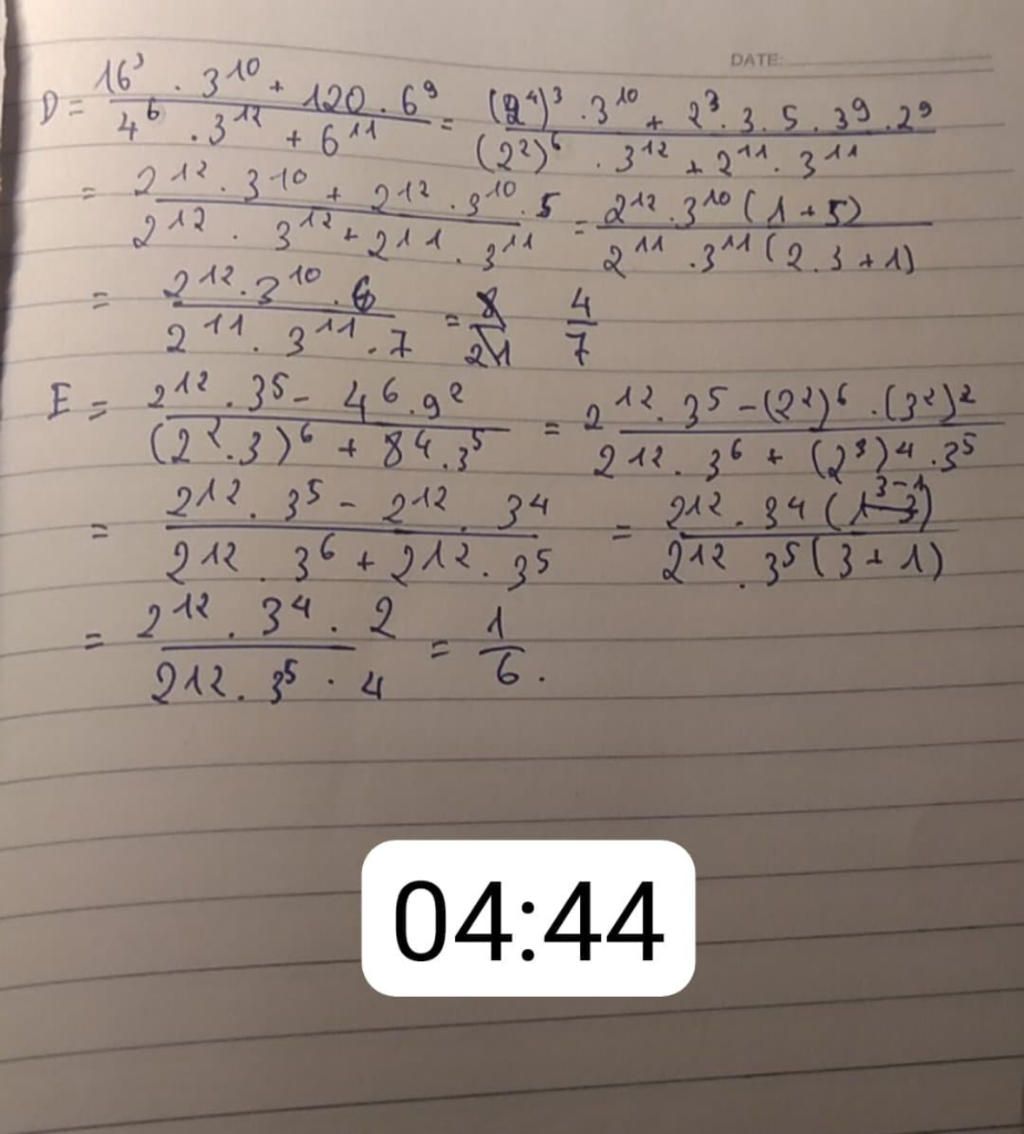 DATE:
D = (16³ . 3¹⁰ + 120 . 6⁹)/(4⁶ . 3¹² + 6¹¹) = ((2⁴)³ . 3¹⁰ + 2³ . 3 . 5 . 3⁹ . 2⁹)/((2²)⁶ . 3¹² + 2¹¹ . 3¹¹)
= (2¹² . 3¹⁰ + 2¹² . 3¹⁰ . 5)/(2¹² . 3¹² + 2¹¹ . 3¹¹) = (2¹² . 3¹⁰ (1 + 5))/(2¹¹ . 3¹¹ (2 . 3 + 1))
= (2¹² . 3¹⁰ . 6)/(2¹¹ . 3¹¹ . 7) = 8/21 4/7
E = (2¹² . 3⁵ - 4⁶ . 9²)/((2² . 3)⁶ + 8⁴ . 3⁵) = (2¹² . 3⁵ - (2²)⁶ . (3²)²)/(2¹² . 3⁶ + (2³)⁴ . 3⁵)
= (2¹² . 3⁵ - 2¹² . 3⁴)/(2¹² . 3⁶ + 2¹² . 3⁵) = (2¹² . 3⁴ (3 - 1))/(2¹² . 3⁵ (3 + 1))
= (2¹² . 3⁴ . 2)/(2¹² . 3⁵ . 4) = 1/6 .
04:44